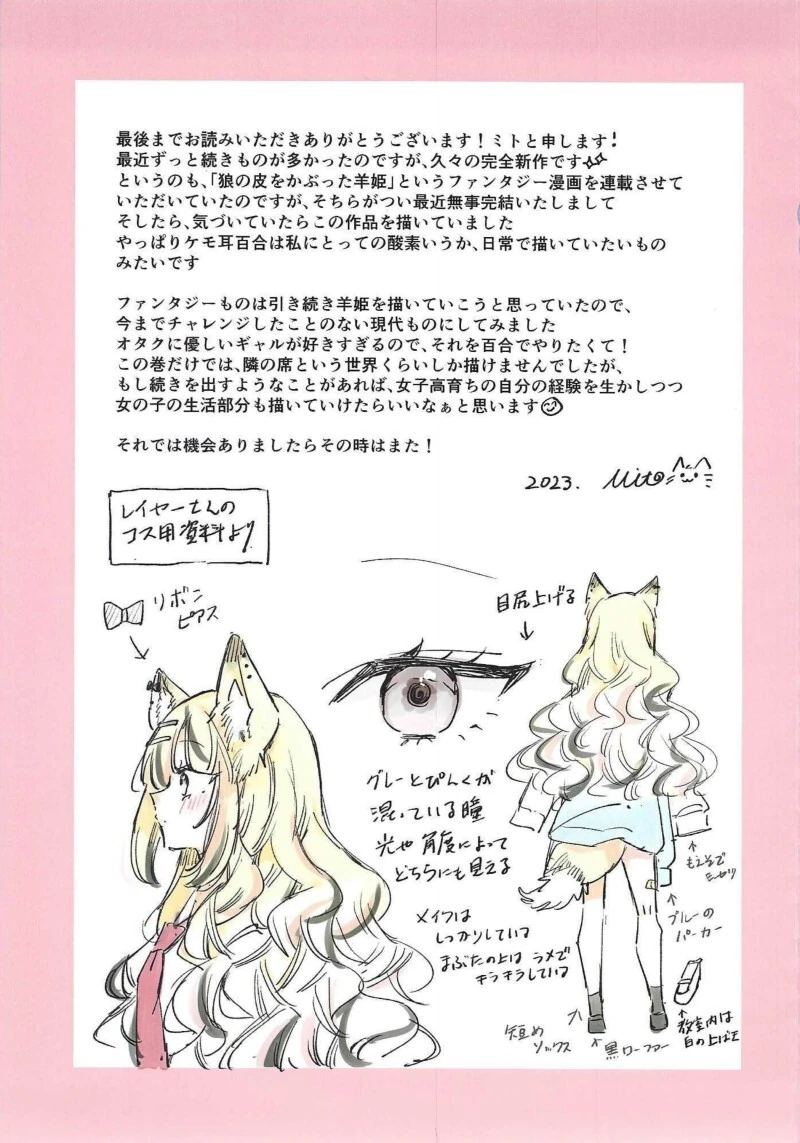 最後までお読みいただきありがとうございます！ミトと申します！
最近ずっと続きものが多かったのですが、久々の完全新作です
というのも、「狼の皮をかぶった羊姫」というファンタジー漫画を連載させて
いただいていたのですが、そちらがつい最近無事完結いたしまして
そしたら、気づいていたらこの作品を描いていました
やっぱりケモ耳百合は私にとっての酸素いうか、日常で描いていたいもの
みたいです
ファンタジーものは引き続き羊姫を描いていこうと思っていたので、
今までチャレンジしたことのない現代ものにしてみました
オタクに優しいギャルが好きすぎるので、それを百合でやりたくて！
この巻だけでは、隣の席という世界くらいしか描けませんでしたが、
もし続きを出すようなことがあれば、女子高育ちの自分の経験を生かしつつ
女の子の生活部分も描いていけたらいいなぁと思います
それでは機会ありましたらその時はまた！
2023. Mito
レイヤーさんの
コス用資料より
リボン
ピアス
目尻上げる
グレーとぴんくが
混っている瞳
光や角度によって
どちらにも見える
メイクは
しっかりしている
まぶたの上は ラメで
キラキラしている
もえそで
ブルーの
パーカー
短め
ソックス
黒ローファー
教室内は
白の上ばき